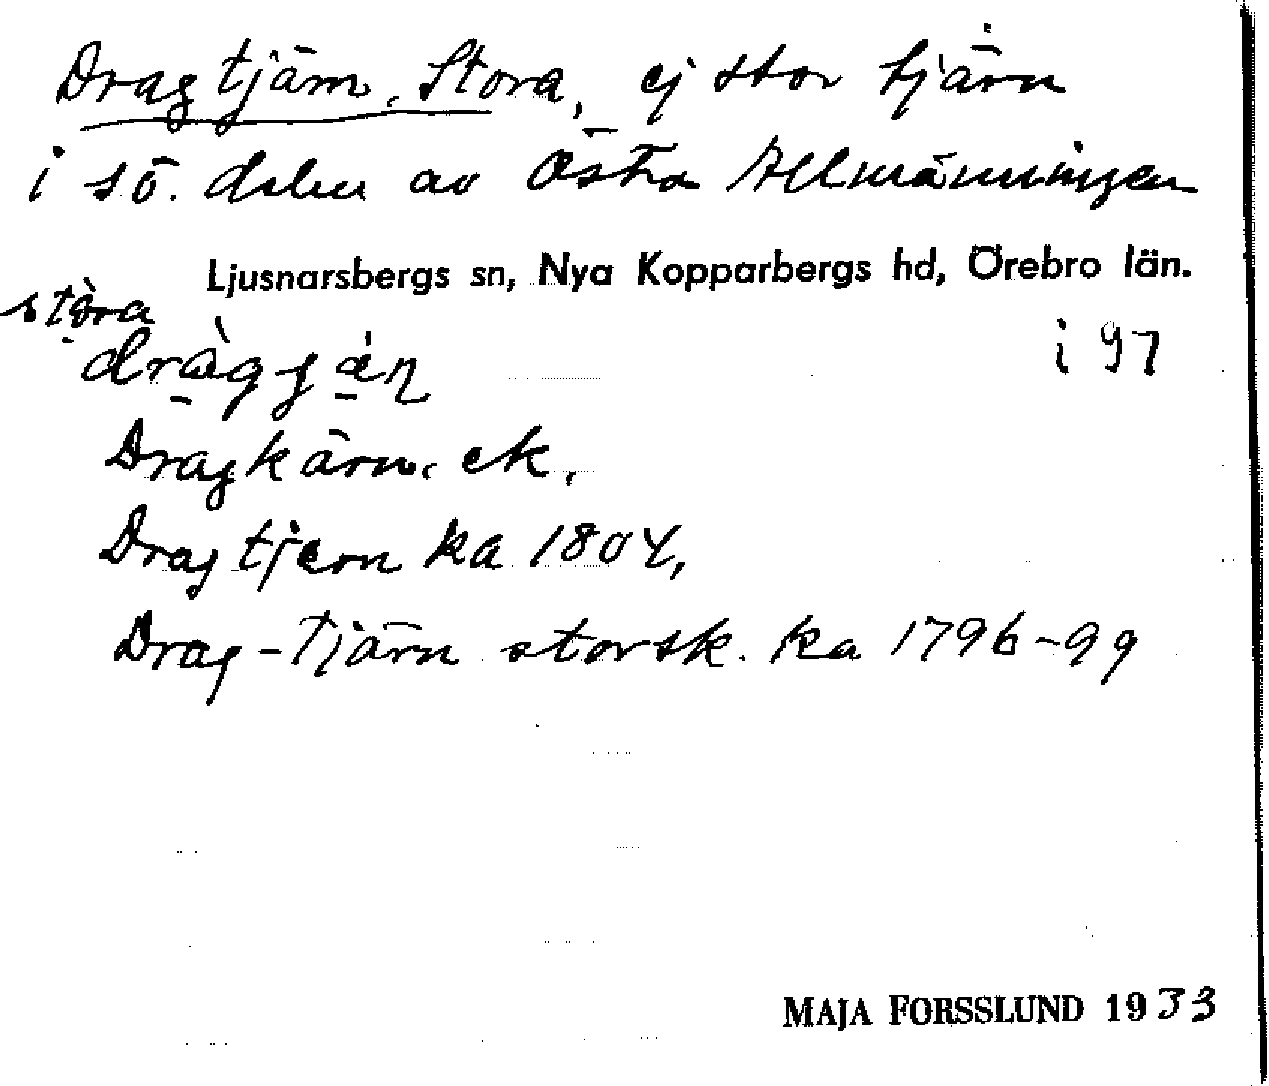 Dragtjärn, Stora, ej stor tjärn
i sö. delen av Östra Allmänningen
Ljusnarsbergs sn, Nya Kopparbergs hd, Örebro län.
stòra
dràgʃän i 97
Dragkärn, ek.
Dragtjern ka 1804,
Drag-Tjärn storsk. ka 1796-99
MAJA FORSSLUND 1933